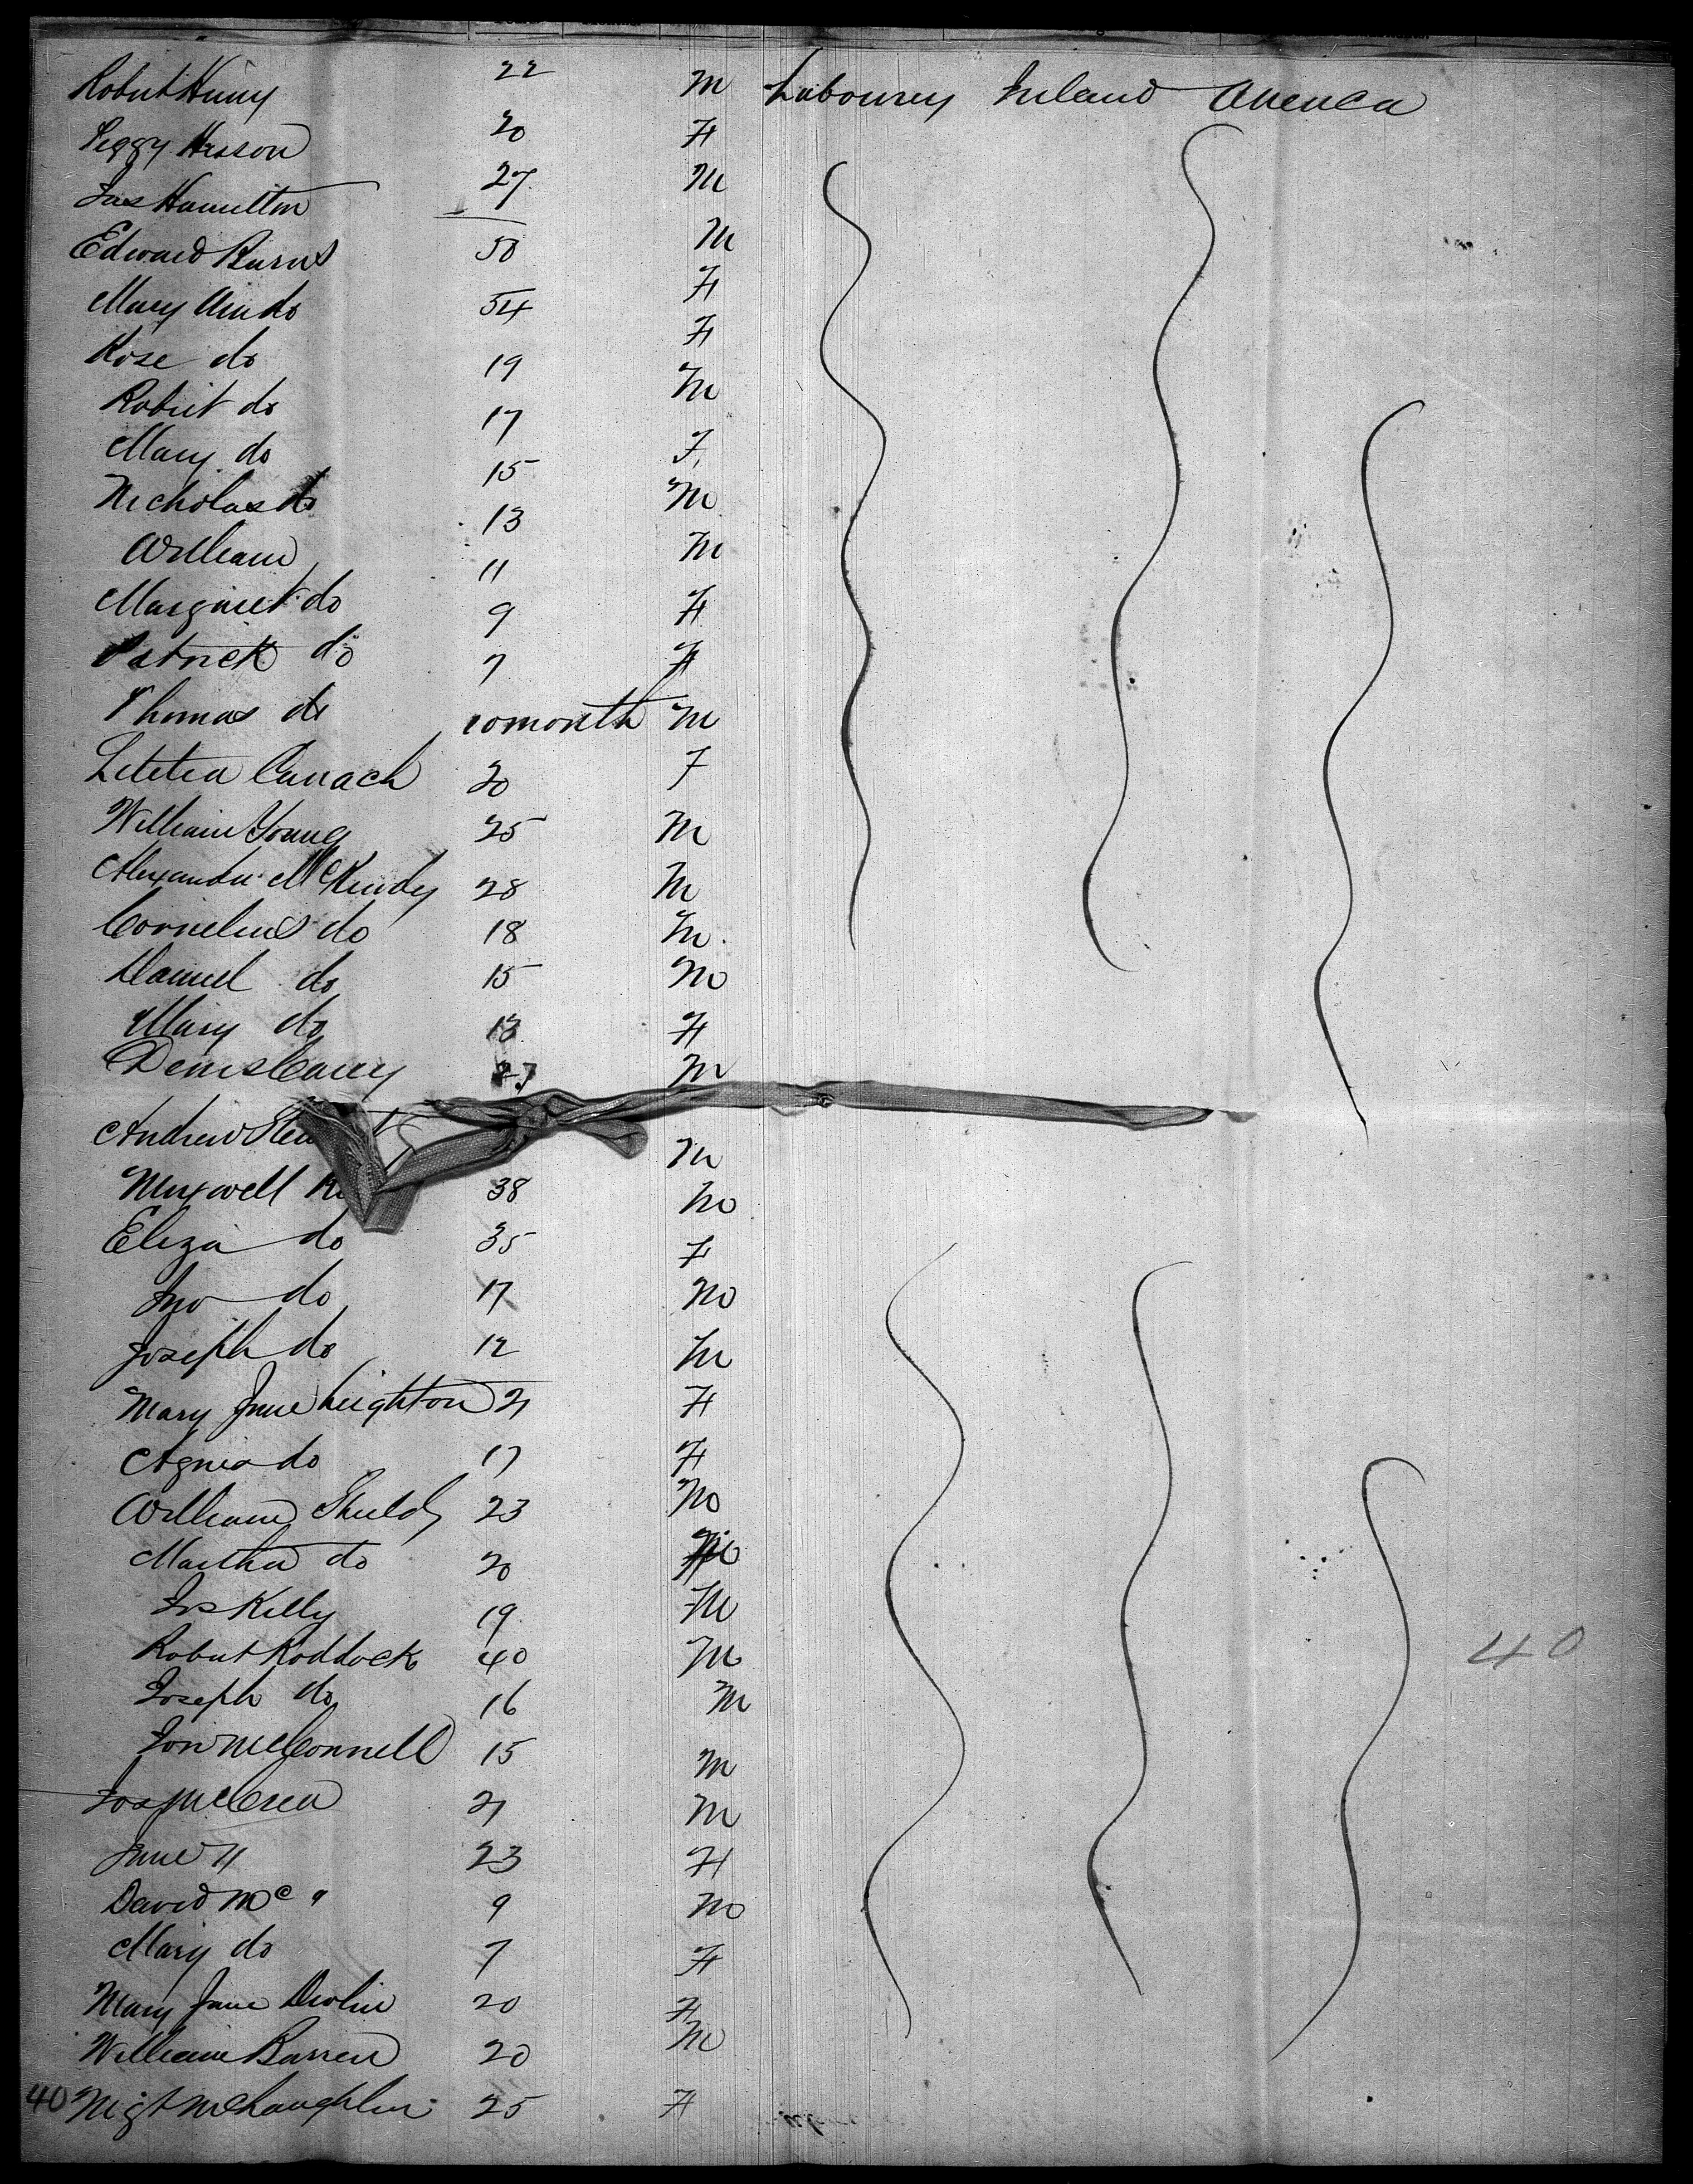 Robert Henry 22 M Labourer Ireland America
Peggy Hesson 20 F
Jas Hamilton 27 M
Edward Burns 50 M
Mary Ann do 54 F
Rose do 19 F
Robert do 17 M
Mary do 15 F
Nicholas do 13 M
William 11 M
Margaret do 9 F
Patrick do 7 F
Thomas do 10 month M
Letitia 20 F
William Young 25 M
Alexander McKendry 28 M
Cornelius do 18 M
Daniel do 15 M
Mary do 13 F
Denis 27 M
Andrew M
Maxwell 38 M
Eliza do 35 F
Jno do 17 M
Joseph do 12 M
Mary Jane Leighton 21 F
Agnes do 17 F
William Shields 23 M
Martha do 20
Jos Kelly 19 M
Robert Roddock 40 M
40
Joseph do 16 M
McConnell 15 M
Jos McCrea 21 M
Jane 11 23 F
David Mc " 9 M
Mary do 7 F
Mary Jane Devlin 20 F
William Barren 20 M
40 Mgt McLaughlin 25 F